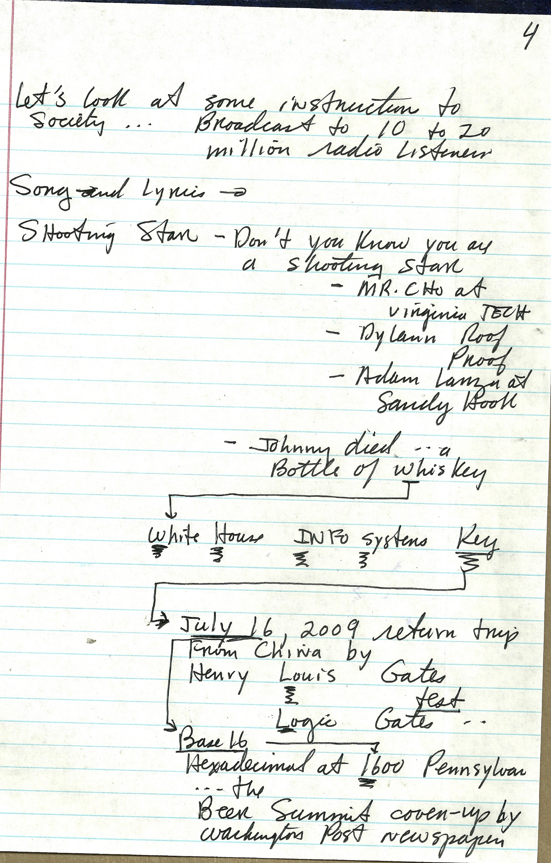 4
Let's look at some instruction to
Society ... Broadcast to 10 to 20
million radio Listeners
Song and Lyrics →
Shooting Star - Don't you know you are
a shooting star
- MR. CHO at
Virginia TECH
- Dylann Roof
Proof
- Adam Lanza at
Sandy Hook
- Johnny died ... a
Bottle of whiskey
White House INFO systems Key
July 16, 2009 return trip
From China by
Henry Louis Gates
test
Logic Gates ..
Base 16
Hexadecimal at 1600 Pennsylvan
... the
Beer Summit cover-up by
Washington Post newspaper